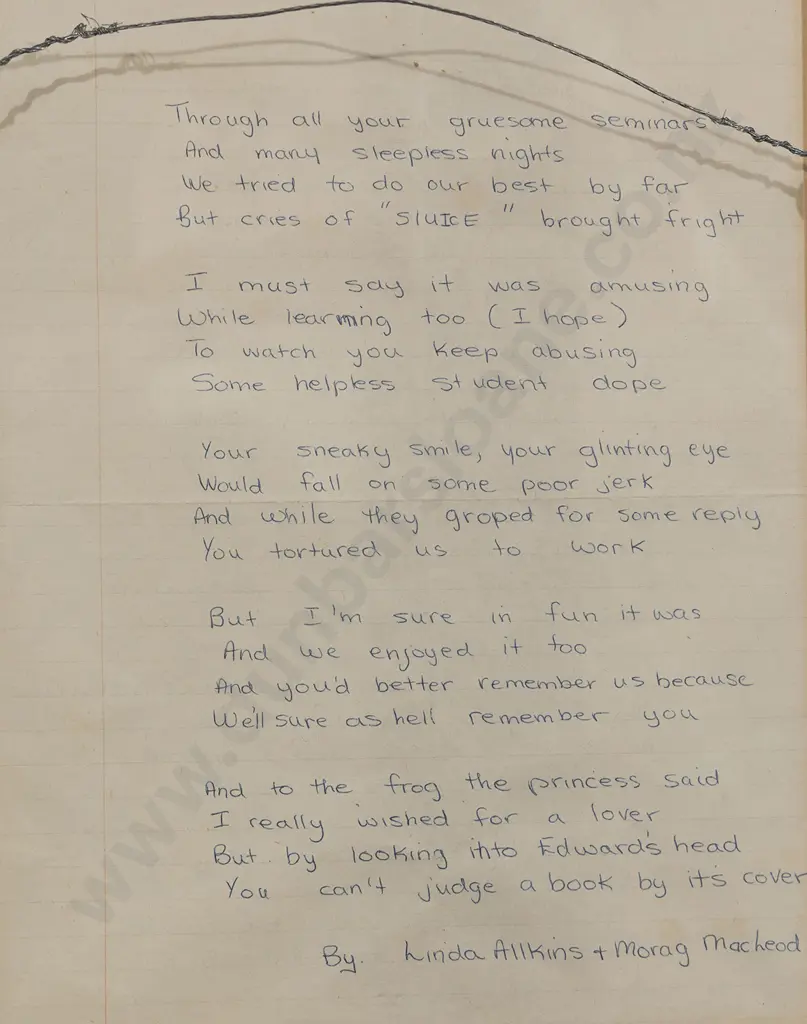 Through all your gruesome seminars
And many sleepless nights
We tried to do our best by far
But cries of "SlUICE" brought fright
I must say it was amusing
While learning too (I hope)
To watch you keep abusing
Some helpless student dope
Your sneaky smile, your glinting eye
Would fall on some poor jerk
And while they groped for some reply
You tortured us to work
But I'm sure in fun it was
And we enjoyed it too
And you'd better remember us because
We'll sure as hell remember you
And to the frog the princess said
I really wished for a lover
But by looking into Edward's head
You can't judge a book by it's cover
By. Linda Allkins + Morag Macleod